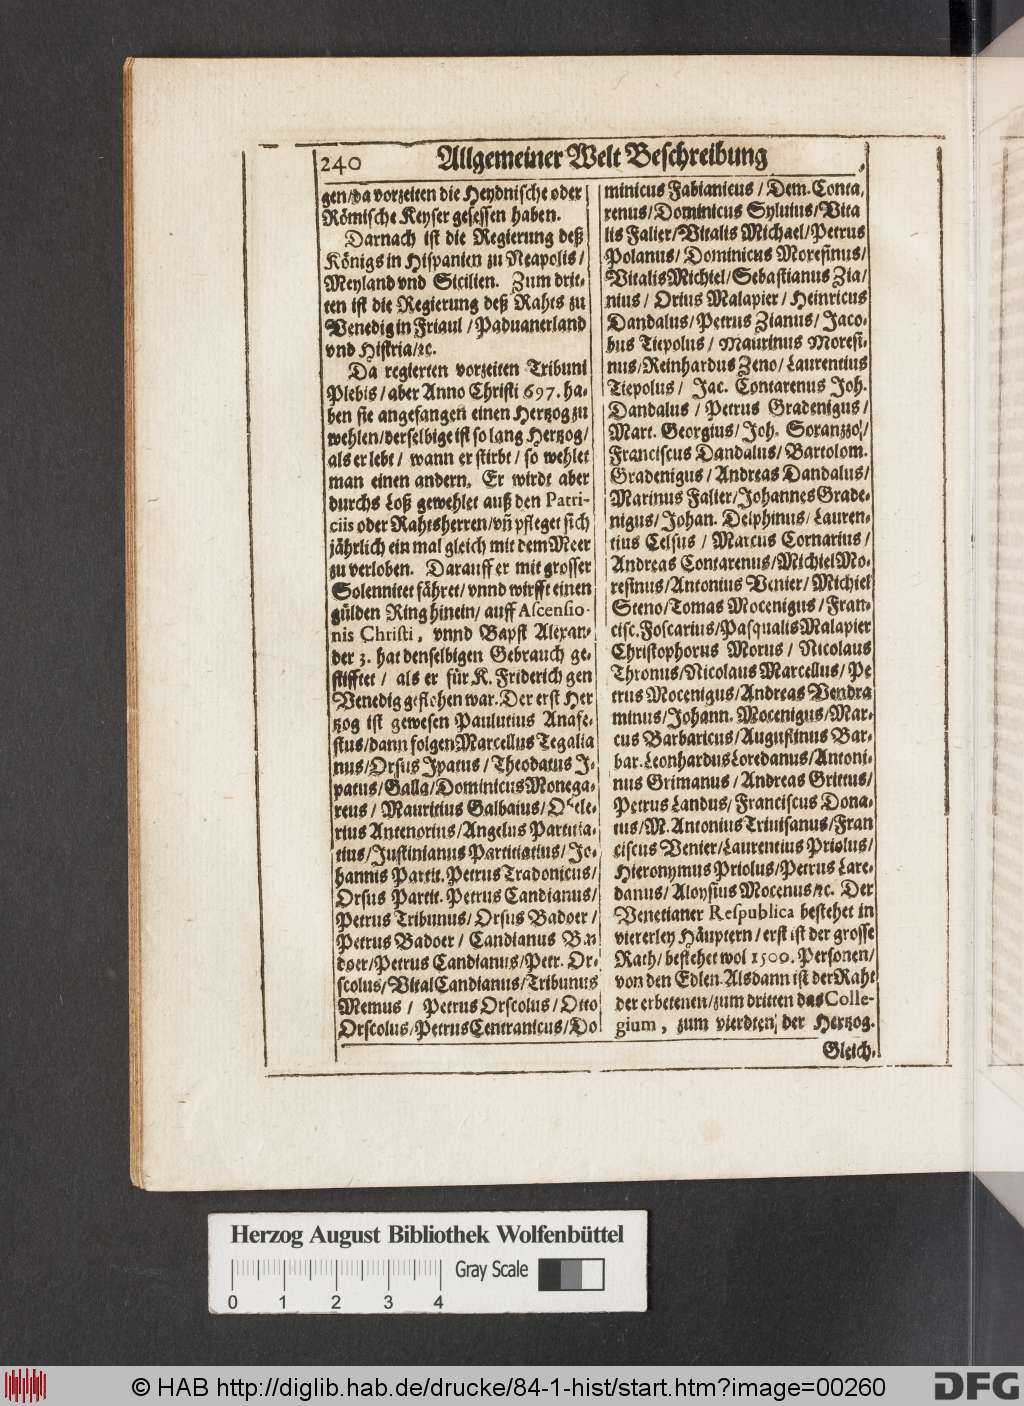 240 Allgemeiner Welt Beschreibung
gen/da vorzeiten die Heydnische oder
Römische Keyser gesessen haben.
Darnach ist die Regierung deß
Königs in Hispanien zu Neapolis/
Meyland vnd Sicilien. Zum drit-
ten ist die Regierung deß Rahts zu
Venedig in Friaul / Paduanerland
vnd Histria/ꝛc.
Da regierten vorzeiten Tribuni
Plebis/aber Anno Christi 697. ha-
ben sie angefangen einen Hertzog zu
wehlen/derselbige ist so lang Hertzog/
als er lebt / wann er stirbt / so wehlet
man einen andern. Er wirdt aber
durchs Loß gewehlet auß den Patri-
ciis oder Rahtsherren/vñ pfleget sich
jährlich ein mal gleich mit dem Meer
zu verloben. Darauff er mit grosser
Solennitet fähret/vnnd wirfft einen
gülden Ring hinein/ auff Ascensio-
nis Christi, vnnd Bapst Alexan-
der 3. hat denselbigen Gebrauch ge-
stifftet / als er für K. Friderich gen
Venedig geflohen war. Der erst Her
tzog ist gewesen Paulutius Anafe-
stus/dann folgen Marcellus Tegalia
nus/Orsus Ipatus / Theodatus I-
patus/Galla/Dominicus Monega-
reus / Mauritius Galbaius/Obele-
rius Antenorius/Angelus Partitia-
tius/Justinianus Partitiatius/Jo-
hannis Partit. Petrus Tradonicus/
Orsus Partit. Petrus Candianus/
Petrus Tribunus/Orsus Badoer/
Petrus Badoer / Candianus B.n
doer/Petrus Candianus/Petr. Or-
scolus/Vital Candianus/Tribunus
Memus / Petrus Orscolus / Otto
Orscolus/Petrus Centranicus/Do
minicus Fabianicus / Dem. Conta,
renus/Dominicus Syluius/Vita
lis Falier/Vitalis Michael/Petrus
Polanus/Dominicus Moresinus/
Vitalis Michiel/Sebastianus Zia/
nius / Orius Malapier / Heinricus
Dandalus/Petrus Zianus/ Jaco-
bus Tiepolus / Maurinus Moresi-
nus/Reinhardus Zeno/Laurentius
Tiepolus / Jac. Contarenus Joh.
Dandalus / Petrus Gradenigus/
Mart. Georgius/Joh. Soranzzo/
Franciscus Dandalus/Bartolom.
Gradenigus / Andreas Dandalus/
Marinus Falier/Johannes Grade-
nigus/Johan. Delphinus/Lauren-
tius Celsus / Marcus Cornarius/
Andreas Contarenus/Michiel Mo-
resinus/Antonius Venier/Michiel
Steno/Tomas Mocenigus/Fran-
cisc. Foscarius/Pasqualis Malapier
Christophorus Morus / Nicolaus
Thronus/Nicolaus Marcellus/Pe
trus Mocenigus/Andreas Vendra
minus/Johann. Mocenigus/Mar-
cus Barbaricus/Augustinus Bar-
bar. Leonhardus Loredanus/Antoni-
nus Grimanus / Andreas Grittus/
Petrus Landus/Franciscus Dona-
tus/M. Antonius Triuisanus/Fran
ciscus Venier/Laurentius Priolus/
Hieronymus Priolus/Petrus Lare-
danus/ Aloysius Mocenus/ꝛc. Der
Venetianer Respublica bestehet in
viererley Häuptern / erst ist der grosse
Rath/bestehet wol 1500. Personen/
von den Edlen. Alsdann ist der Raht
der erbetenen/zum dritten das Colle-
gium, zum vierdten der Hertzog.
Gleich-
Herzog August Bibliothek Wolfenbüttel
Gray Scale
0 1 2 3 4
© HAB http://diglib.hab.de/drucke/84-1-hist/start.htm?image=00260
DFG